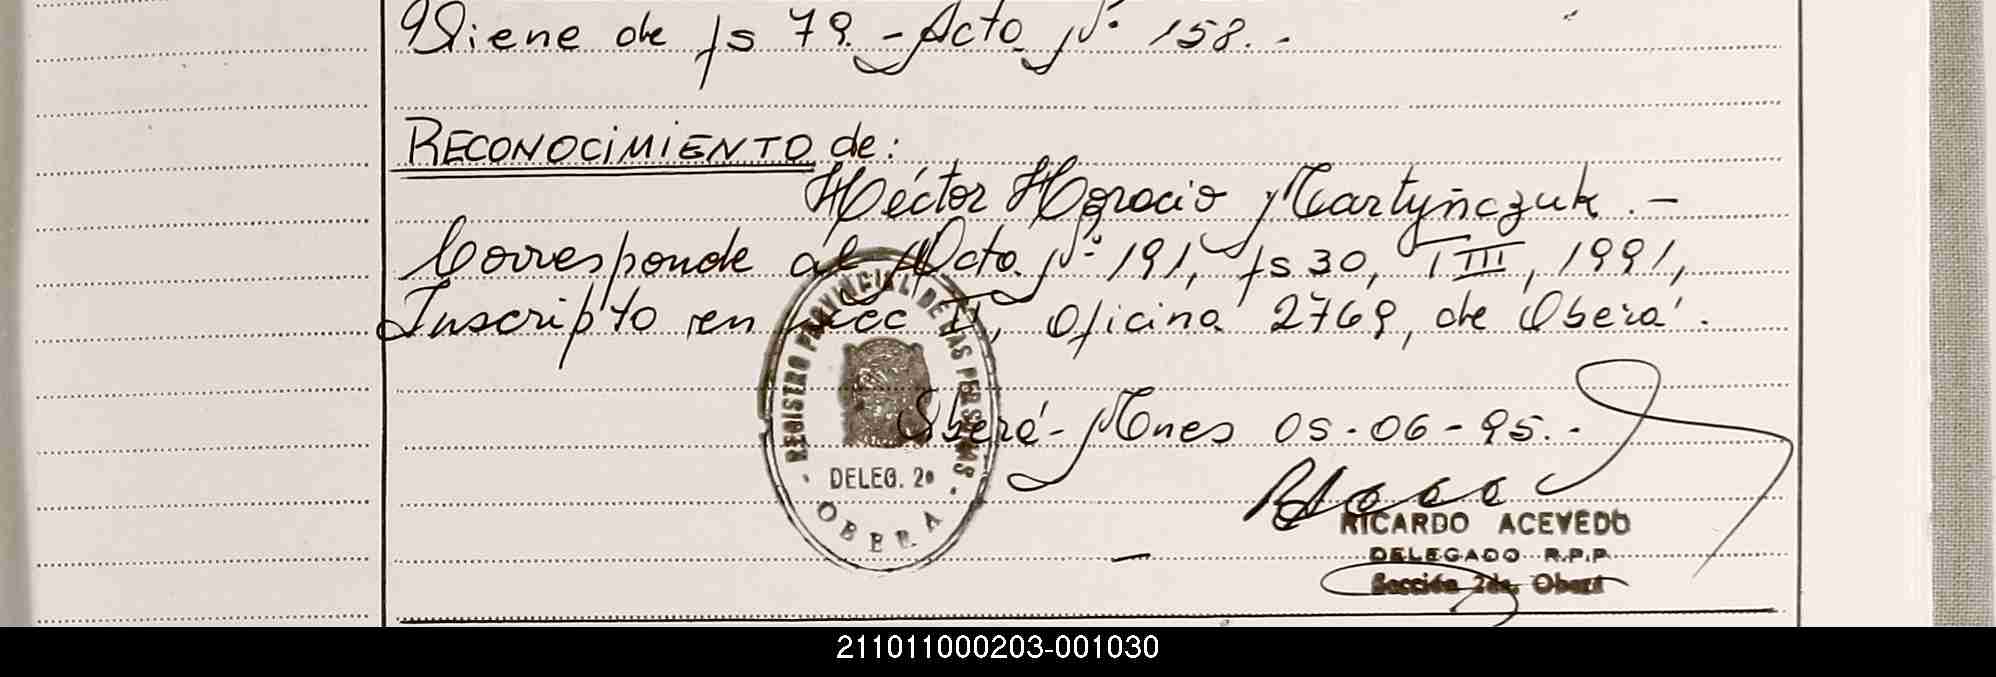 Viene de fs 79. - Acta Nº 158. -
RECONOCIMIENTO de:
Héctor Horacio Martyñczuk. -
Corresponde al Acta Nº 191, fs 30, T III, 1991,
Inscripto en Secc II, Oficina 2769, de Oberá.
REGISTRO PROVINCIAL DE LAS PERSONAS
DELEG. 2ª
OBERA
Oberá - Mnes 05-06-95. -
RICARDO ACEVEDO
DELEGADO R.P.P
Sección 2da. Oberá
211011000203-001030